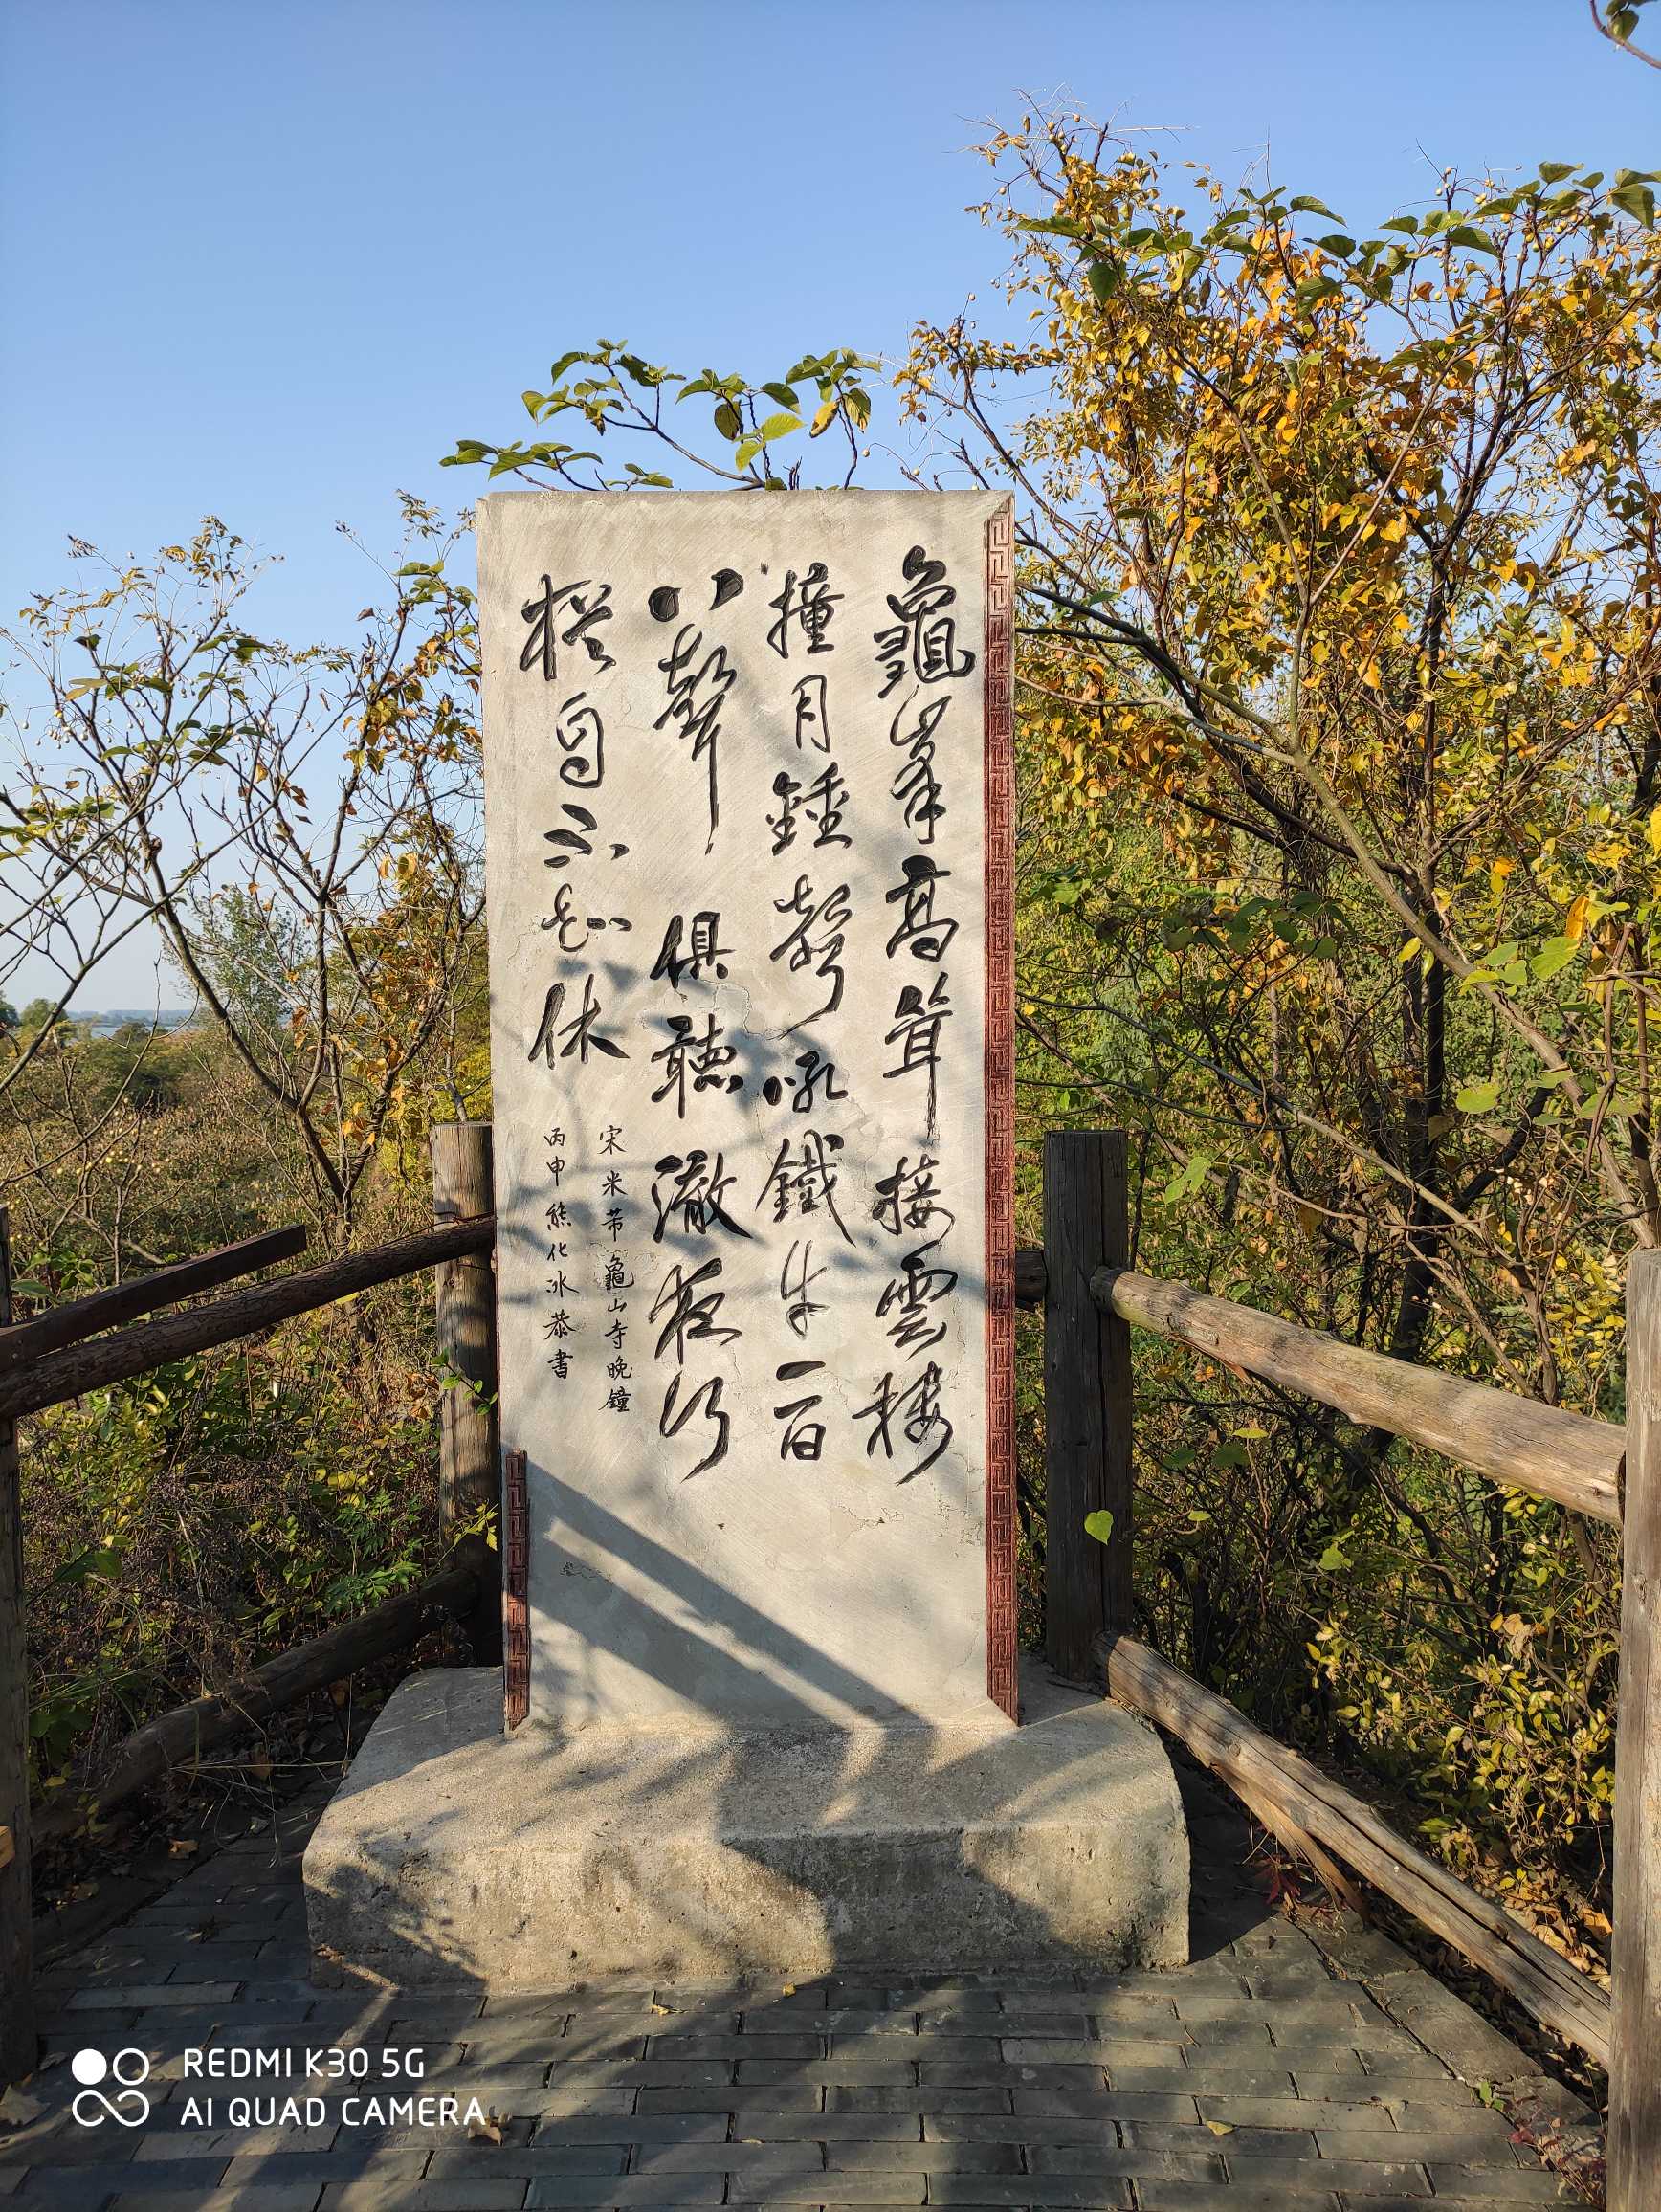 龜峯高耸接雲樓
撞月鍾聲吼鐵牛一百
八聲俱聽澈夜行
猶自不知休
宋米芾龜山寺晚鐘
丙申熊化冰恭書
REDMI K30 5G
AI QUAD CAMERA